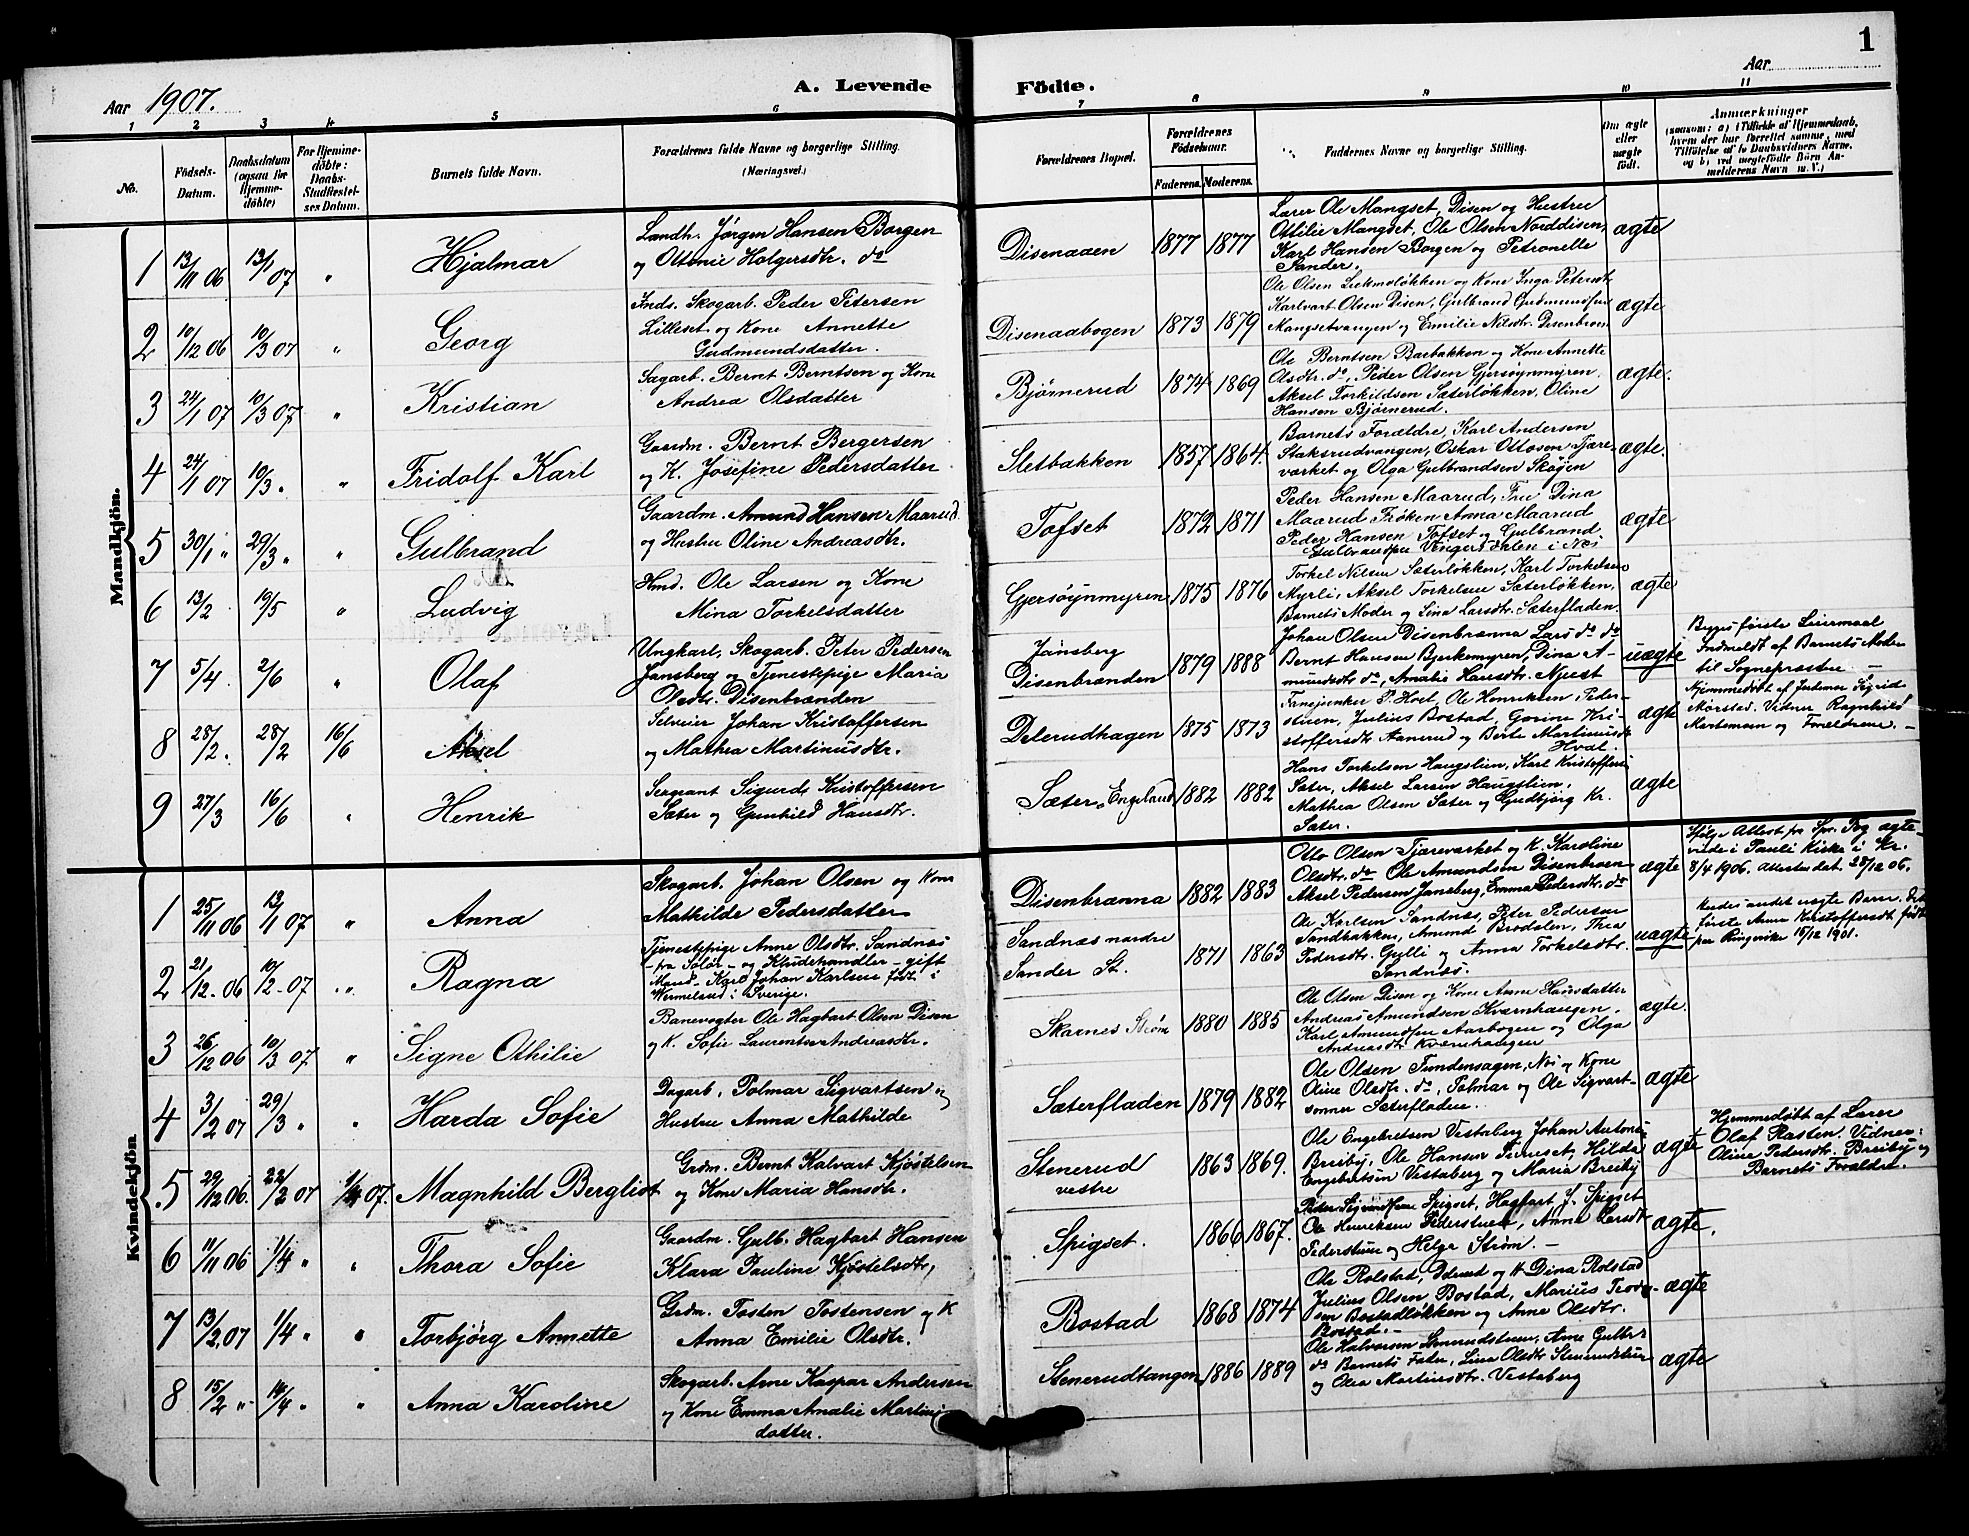 1
Aar 1907.
A. Levende Födte.
Aar
1 2 3 4 5 6 7 8 9 10 11
No.
Födsels-
Datum.
Daabsdatum
(ogsaa for
Hjemme-
döbte)
For Hjemme-
döbte:
Daabs-
Stadfæstel-
ses Datum.
Barnets fulde Navn.
Forældrenes fulde Navne og borgerlige Stilling.
(Næringsvei.)
Forældrenes Bopæl.
Forældrenes
Födselsaar.
Faderens. Moderens.
Faddernes Navne og borgerlige Stilling.
Om ægte
eller
uægte
födt.
Anmærkninger
(saasom: a) i Tilfælde af Hjemmedaab,
hvem der har forrettet samme, med
Tilföielse af to Daabsvidners Navne,
og b) ved uægtefödte Börn An-
melderens Navn m. V.)
Mandkjön.
1 13/11 06 13/1 07 " Hjalmar
Landh. Jørgen Hansen Borgen
og Ottonie Holgersdtr. do
Disenaaen 1877 1877
Lærer Ole Mangset, Disen og Hustru
Othilie Mangset, Ole Olsen Norddisen,
Karl Hansen Borgen og Petronelle
Sander.
ægte
2 10/12 06 10/3 07 " Georg
Inds. Skogarb. Peder Petersen
Lilleset og Kone Annette
Gudmundsdatter.
Disenaabogen 1873 1879
Ole Olsen og Kone Inga Petersdtr
Karlvart Olsen Disen, Gulbrand Gudmundsen
Mangsetvangen og Emilie Nilsdtr. Disenbroen
ægte
3 24/1 07 10/3 07 " Kristian
Sagarb. Bernt Berntsen og Kone
Andrea Olsdatter
Bjørnerud 1874 1869
Ole Berntsen Barbakken og Kone Annette
Olsdtr. do, Peder Olsen Gjersøynmyren.
Aksel Torkildsen Sæterløkken, Oline
Hansen Bjørnerud.
ægte.
4 24/1 07 10/3 " " Fridolf Karl
Gaardm. Bernt Bergersen
og K. Josefine Pedersdatter
Sletbakken 1857 1864.
Barnets Forældre, Karl Andersen
Staksrudvangen, Oskar Ottosen Tjære-
værket og Olga Gulbrandsen Skøjen
ægte.
5 30/1 " 29/3 " " Gulbrand
Gaardm. Amund Hansen Maarud
og Hustru Oline Andreasdtr.
Tofset 1872 1871
Peder Hansen Maarud, Fru Dina
Maarud Frøken Anna Maarud
Peder Hansen Tofset og Gulbrand
Gulbrandsen i Nes
ægte
6 13/2 19/5 " Ludvig
Hmd. Ole Larsen og Kone
Mina Torkelsdatter
Gjersøynmyren 1875 1876
Torkel Nilsen Sæterløkken, Karl Torkelsen
Myrli, Aksel Torkelsen Sæterløkken,
Barnets Moder og Lina Larsdtr. Sæterfladen.
ægte
7 5/4. 2/6 " Olaf
Ungkarl, Skogarb. Peter Pedersen
Jansberg og Tjenestepige Maria
Olsdtr. Disenbrænden
Jansberg
Disenbrænden 1879 1888
Johan Olsen Disenbrænna Lars do do
Bernt Hansen Bjerkemyren, Dina A-
mundsdtr do, Amalie Hansdtr. Nyset
uægte
Begges første Leiermaal
Indmeldt af Barnets Moder
til Sognepræsten. —
8 28/2. 28/2 16/6 Aksel
Selveier Johan Kristoffersen
og Mathea Martinusdtr.
Delerudhagen 1875 1873
P. Hoel, Ole Henriksen, Peder-
stuen, Julius Bostad, Gorine Kri-
stoffersdtr Aanerud og Berte Martinusdtr
Hval.
ægte
Hjemmedøbt af Jordemor Sigrid
Mørstad. Vidner Ragnhild
Mortensen og Forældrene. —
9 27/3 16/6 " Henrik
Sergeant Sigurd Kristoffersen
Sæter og Gunhild Hansdtr.
Sæter, Engeland 1882 1882
Hans Torkelsen Haugslien, Karl Kristoffersen
Sæter, Aksel Larsen Haugslien,
Mathea Olsen Sæter og Gudbjørg Kr.
Sæter.
ægte
Kvindekjön.
1 25/11 06 13/1 07 " Anna
Skogarb. Johan Olsen og Kone
Mathilde Pedersdatter
Disenbrænna 1882 1883
Otto Olsen Tjæreværket og K. Karoline
Olsdtr. do Ole Amundsen Disenbroen
Aksel Pedersen Jansberg, Emma Pedersdtr. do
ægte
Ifølge Attest fra Spr. ægte-
viede i Pauli Kirke i Kr.
8/4 1906. Attesten dat. 28/12 06.
2 21/12-06 10/2-07 " Ragna
Tjenestepige Anne Olsdtr. Sandnæs
— fra Solør — og Kludehandler — gift
Mand — Karl Johan Karlsen født i
Wermeland i Sverige.
Sandnæs nordre
Sander St. 1871 1863
Ole Karlsen Sandnæs, Peter Pedersen
Sandbakken, Amund Brodalen, Thea
Pedersdtr. Gulli og Anna Torkelsdtr.
Sandnæs.
uægte
Hendes andet uægte Barn. Det
første Anna Kristoffersdt født
paa Ringerike 15/12 1901.
3 26/12 06 10/3 07 " Signe Othilie
Banevogter Ole Hagbart Olsen Disen
og K. Sofie Laurentse Andreasdtr.
Skarnes Strøm 1880 1885
Ole Olsen Disen og Kone Anne Hansdatter
Andreas Amundsen Kværnhaugen.
Karl Amundsen Aarbogen og Olga
Andreasdtr Kværnhaugen
ægte.
4 3/2 07 29/3 " " Harda Sofie
Dagarb. Palmar Sigvartsen og
Hustru Anna Mathilde
Sæterfladen 1879 1882
Ole Olsen Tundensagen, Nes og Kone
Oline Olsdtr. do, Palmar og Ole Sigvart-
sønner Sæterfladen.
ægte
5 29/12 06. 22/2 07 1/4 07. Magnhild Bergliot
Grdm. Bernt Kalvart Kjøstelsen
og Kone Maria Hansdtr.
Stenerud
vestre 1863 1869.
Ole Engebretsen Vestaberg Johan Antons.
Breiby, Ole Hansen Hilda
Engebretsen Vestaberg og Maria Breiby
ægte
Hjemmedøbt af Lærer
Olaf Rasten. Vidner:
Olina Pedersdtr. Breiby og
Barnets Forældre.
6 11/11 06 1/4 " " Thora Sofie
Gaardm. Gulb. Hagbart Hansen
Klara Pauline Kjøstelsdtr,
Spigset. 1866 1867.
Peder Spigset, Hagbart J. Spigset
Ole Henriksen Pederstuen, Anna Larsdt
Pederstuen og Helge Strøm. —
ægte.
7 13/2, 07 1/4 " " Torbjørg Annette
Grdm. Tosten Tostensen og K
Anna Emilie Olsdtr.
Bostad 1868 1874
Ole Rolstad, Oderud og K Dina Rolstad
Julius Olsen Bostad, Marius Teodor-
sen Bostadløkken og Anne Olsdtr.
Bostad. —
ægte
8 15/2 " 14/4 " " Anna Karoline
Skogarb. Arne Kaspar Andersen
og Kone Emma Amalie Martinus-
datter.
Stenerudtangen 1886 1889
Ole Halvorsen Stenerudstuen, Arne Gulbr-
do Barnets Fader, Lina Olsdtr Stenerudstuen
og Olea Martinusdtr. Vestaberg
ægte